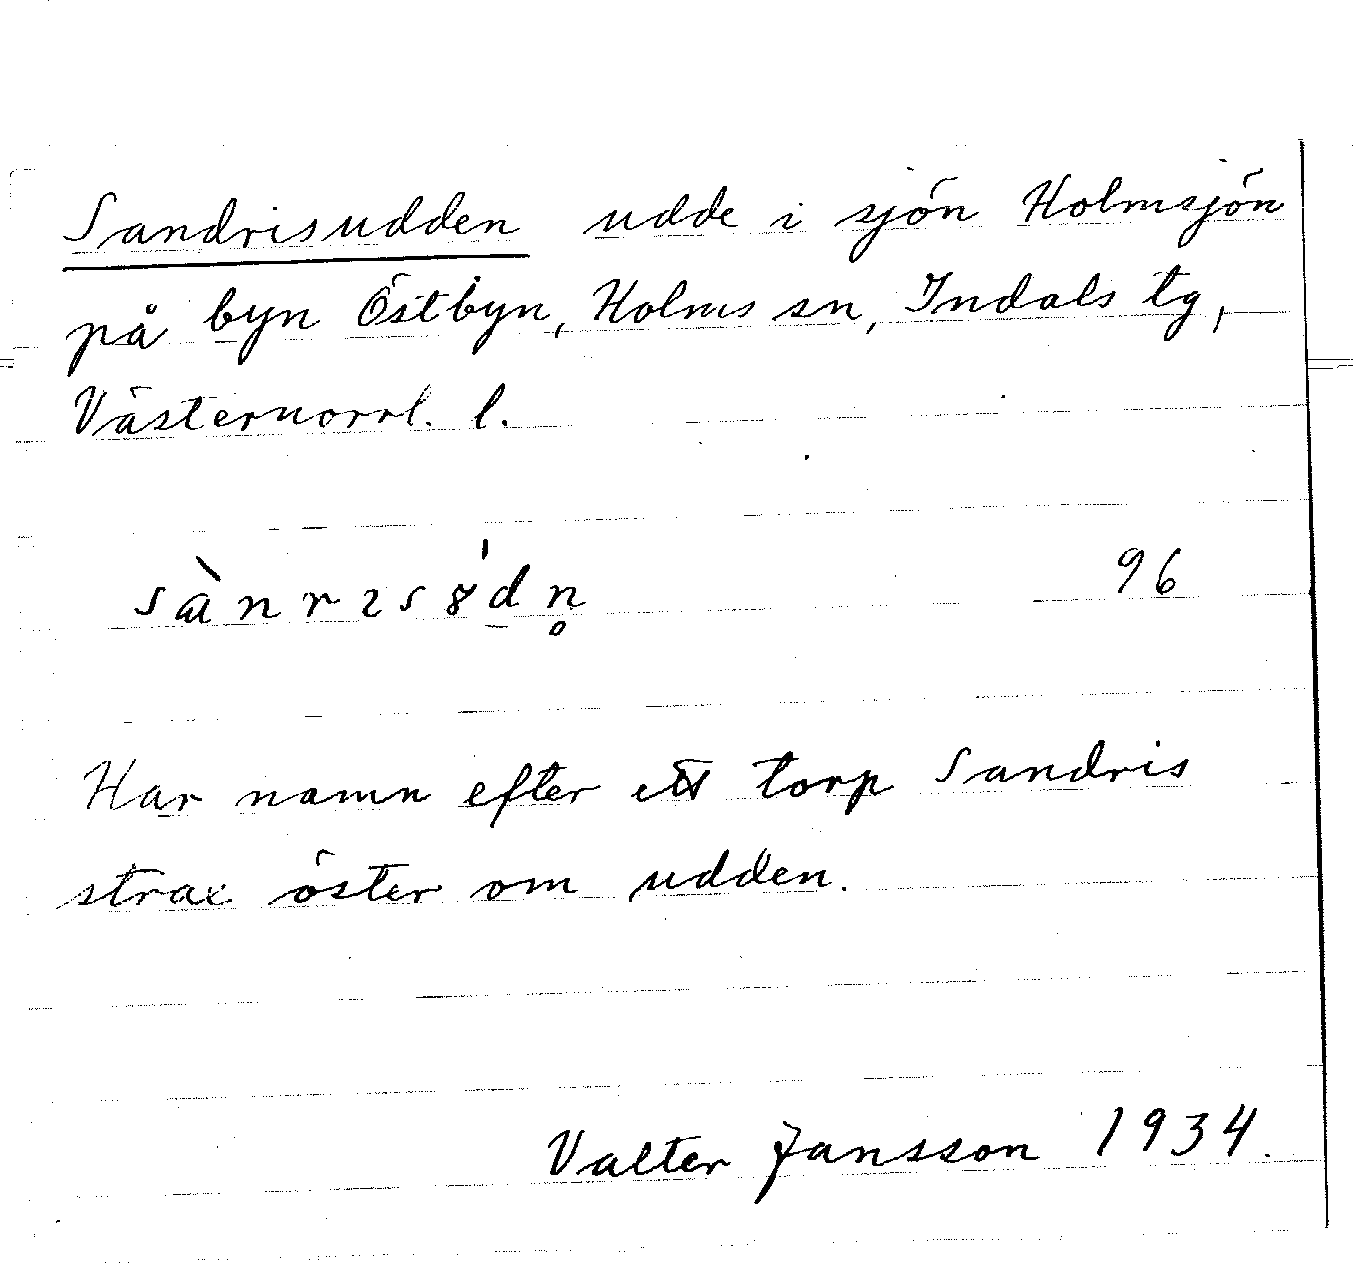 Sandrisudden udde i sjön Holmsjön
på byn Östbyn, Holms sn, Indals tg,
Västernorrl. l.
96
Har namn efter ett torp Sandris
strax öster om udden.
Valter Jansson 1934.